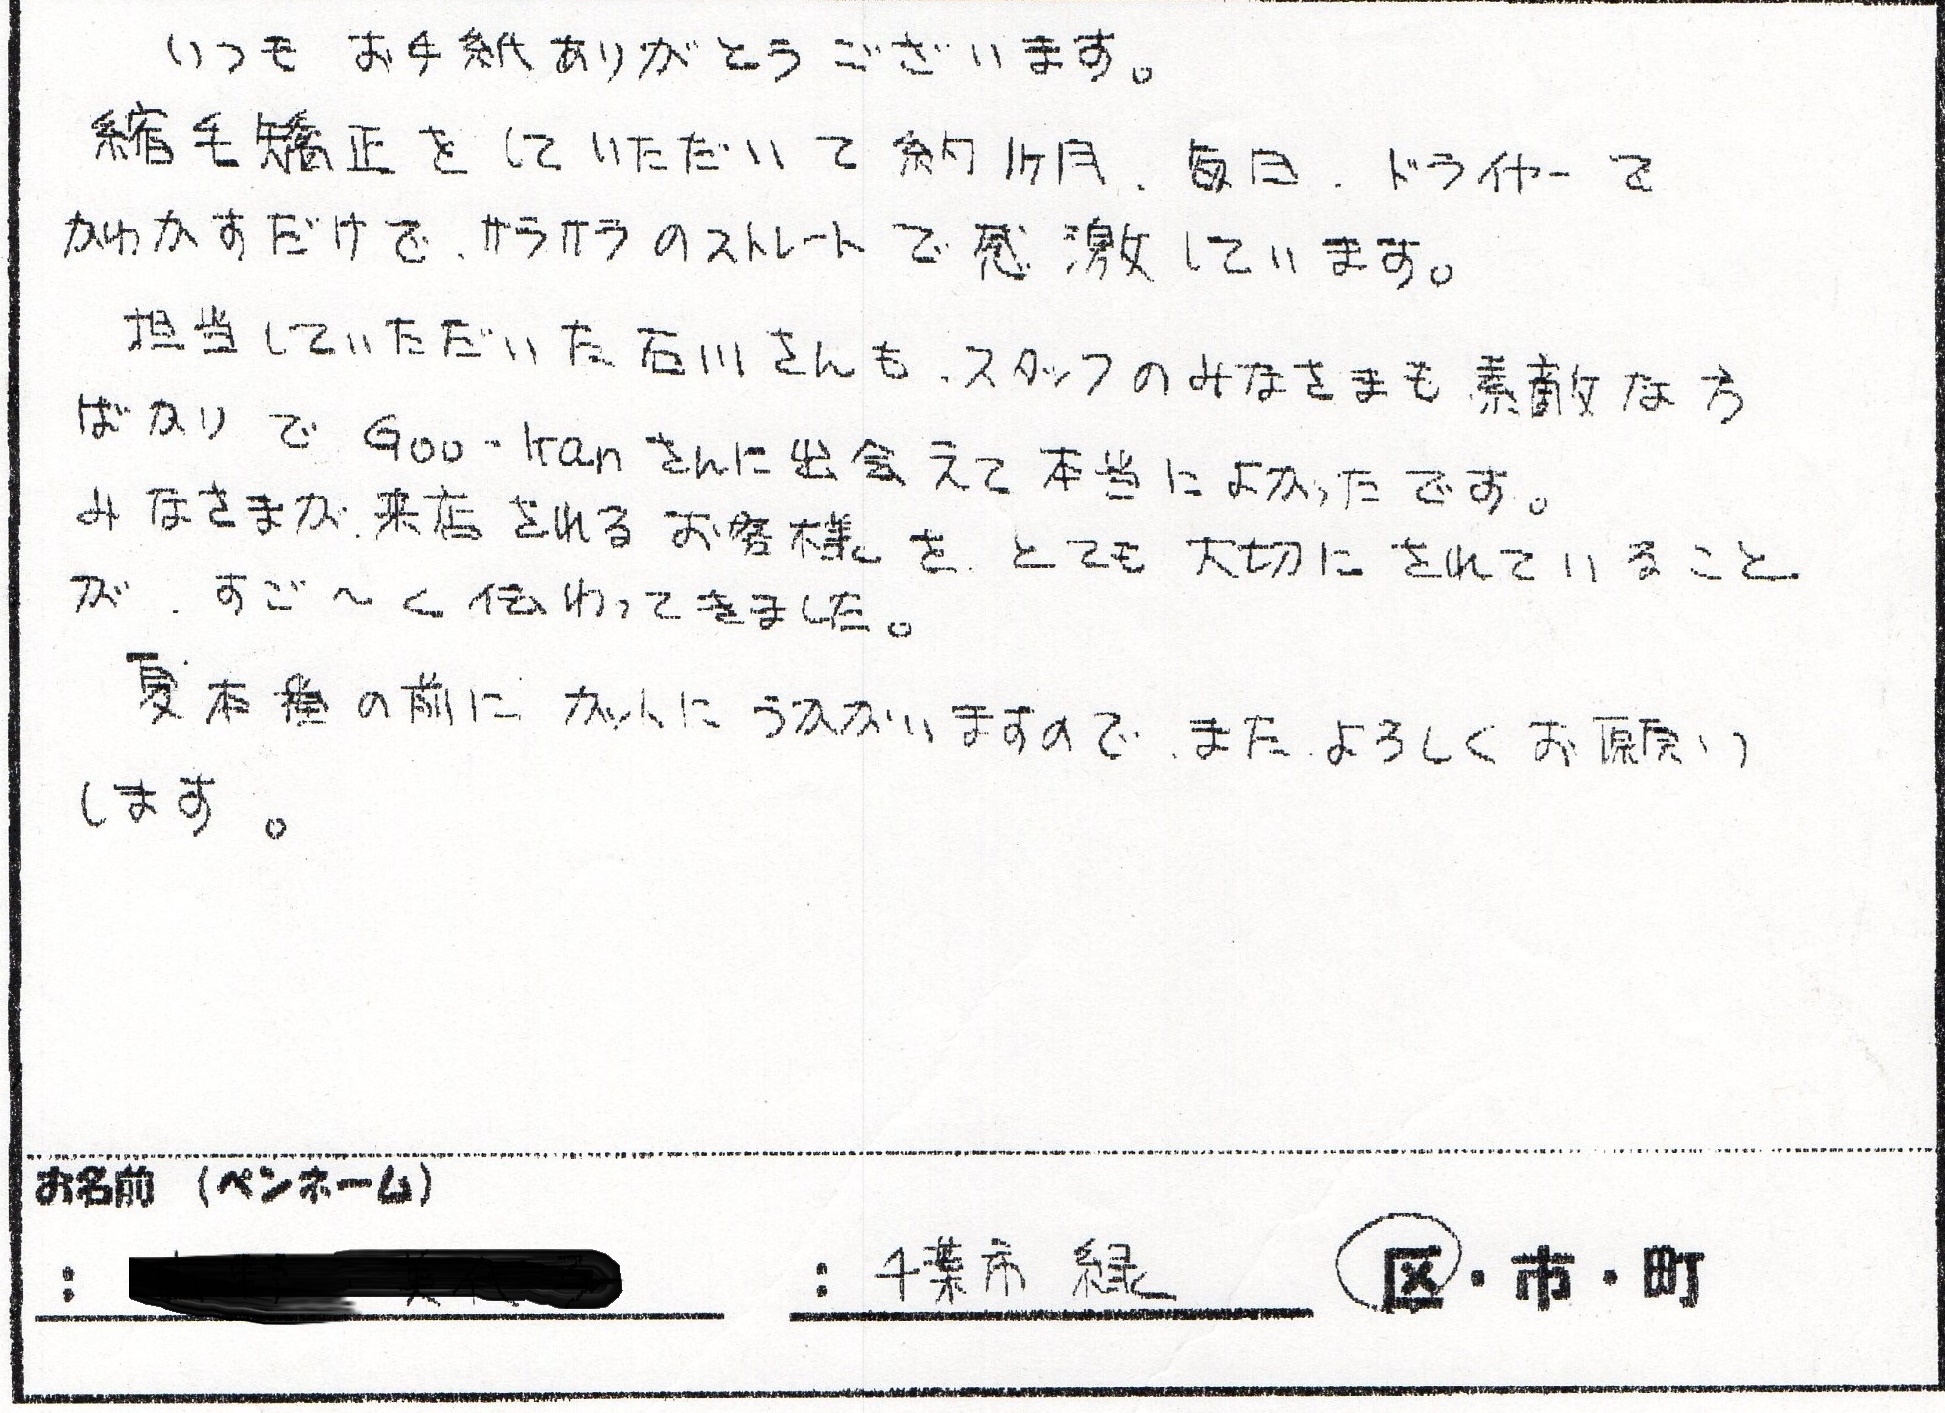 いつも お手紙ありがとうございます。
縮毛矯正をしていただいて約1ヶ月、毎日、ドライヤーで
かわかすだけで、サラサラのストレートで感激しています。
担当していただいた石川さんも、スタッフのみなさまも素敵な方
ばかりで Goo-kanさんに出会えて本当によかったです。
みなさまが、来店されるお客様を、とても大切にされていること
が、すご〜く伝わってきました。
夏本番の前に カットにうかがいますので、また、よろしくお願い
します。
お名前 (ペンネーム)
: : 千葉市 緑 区・市・町